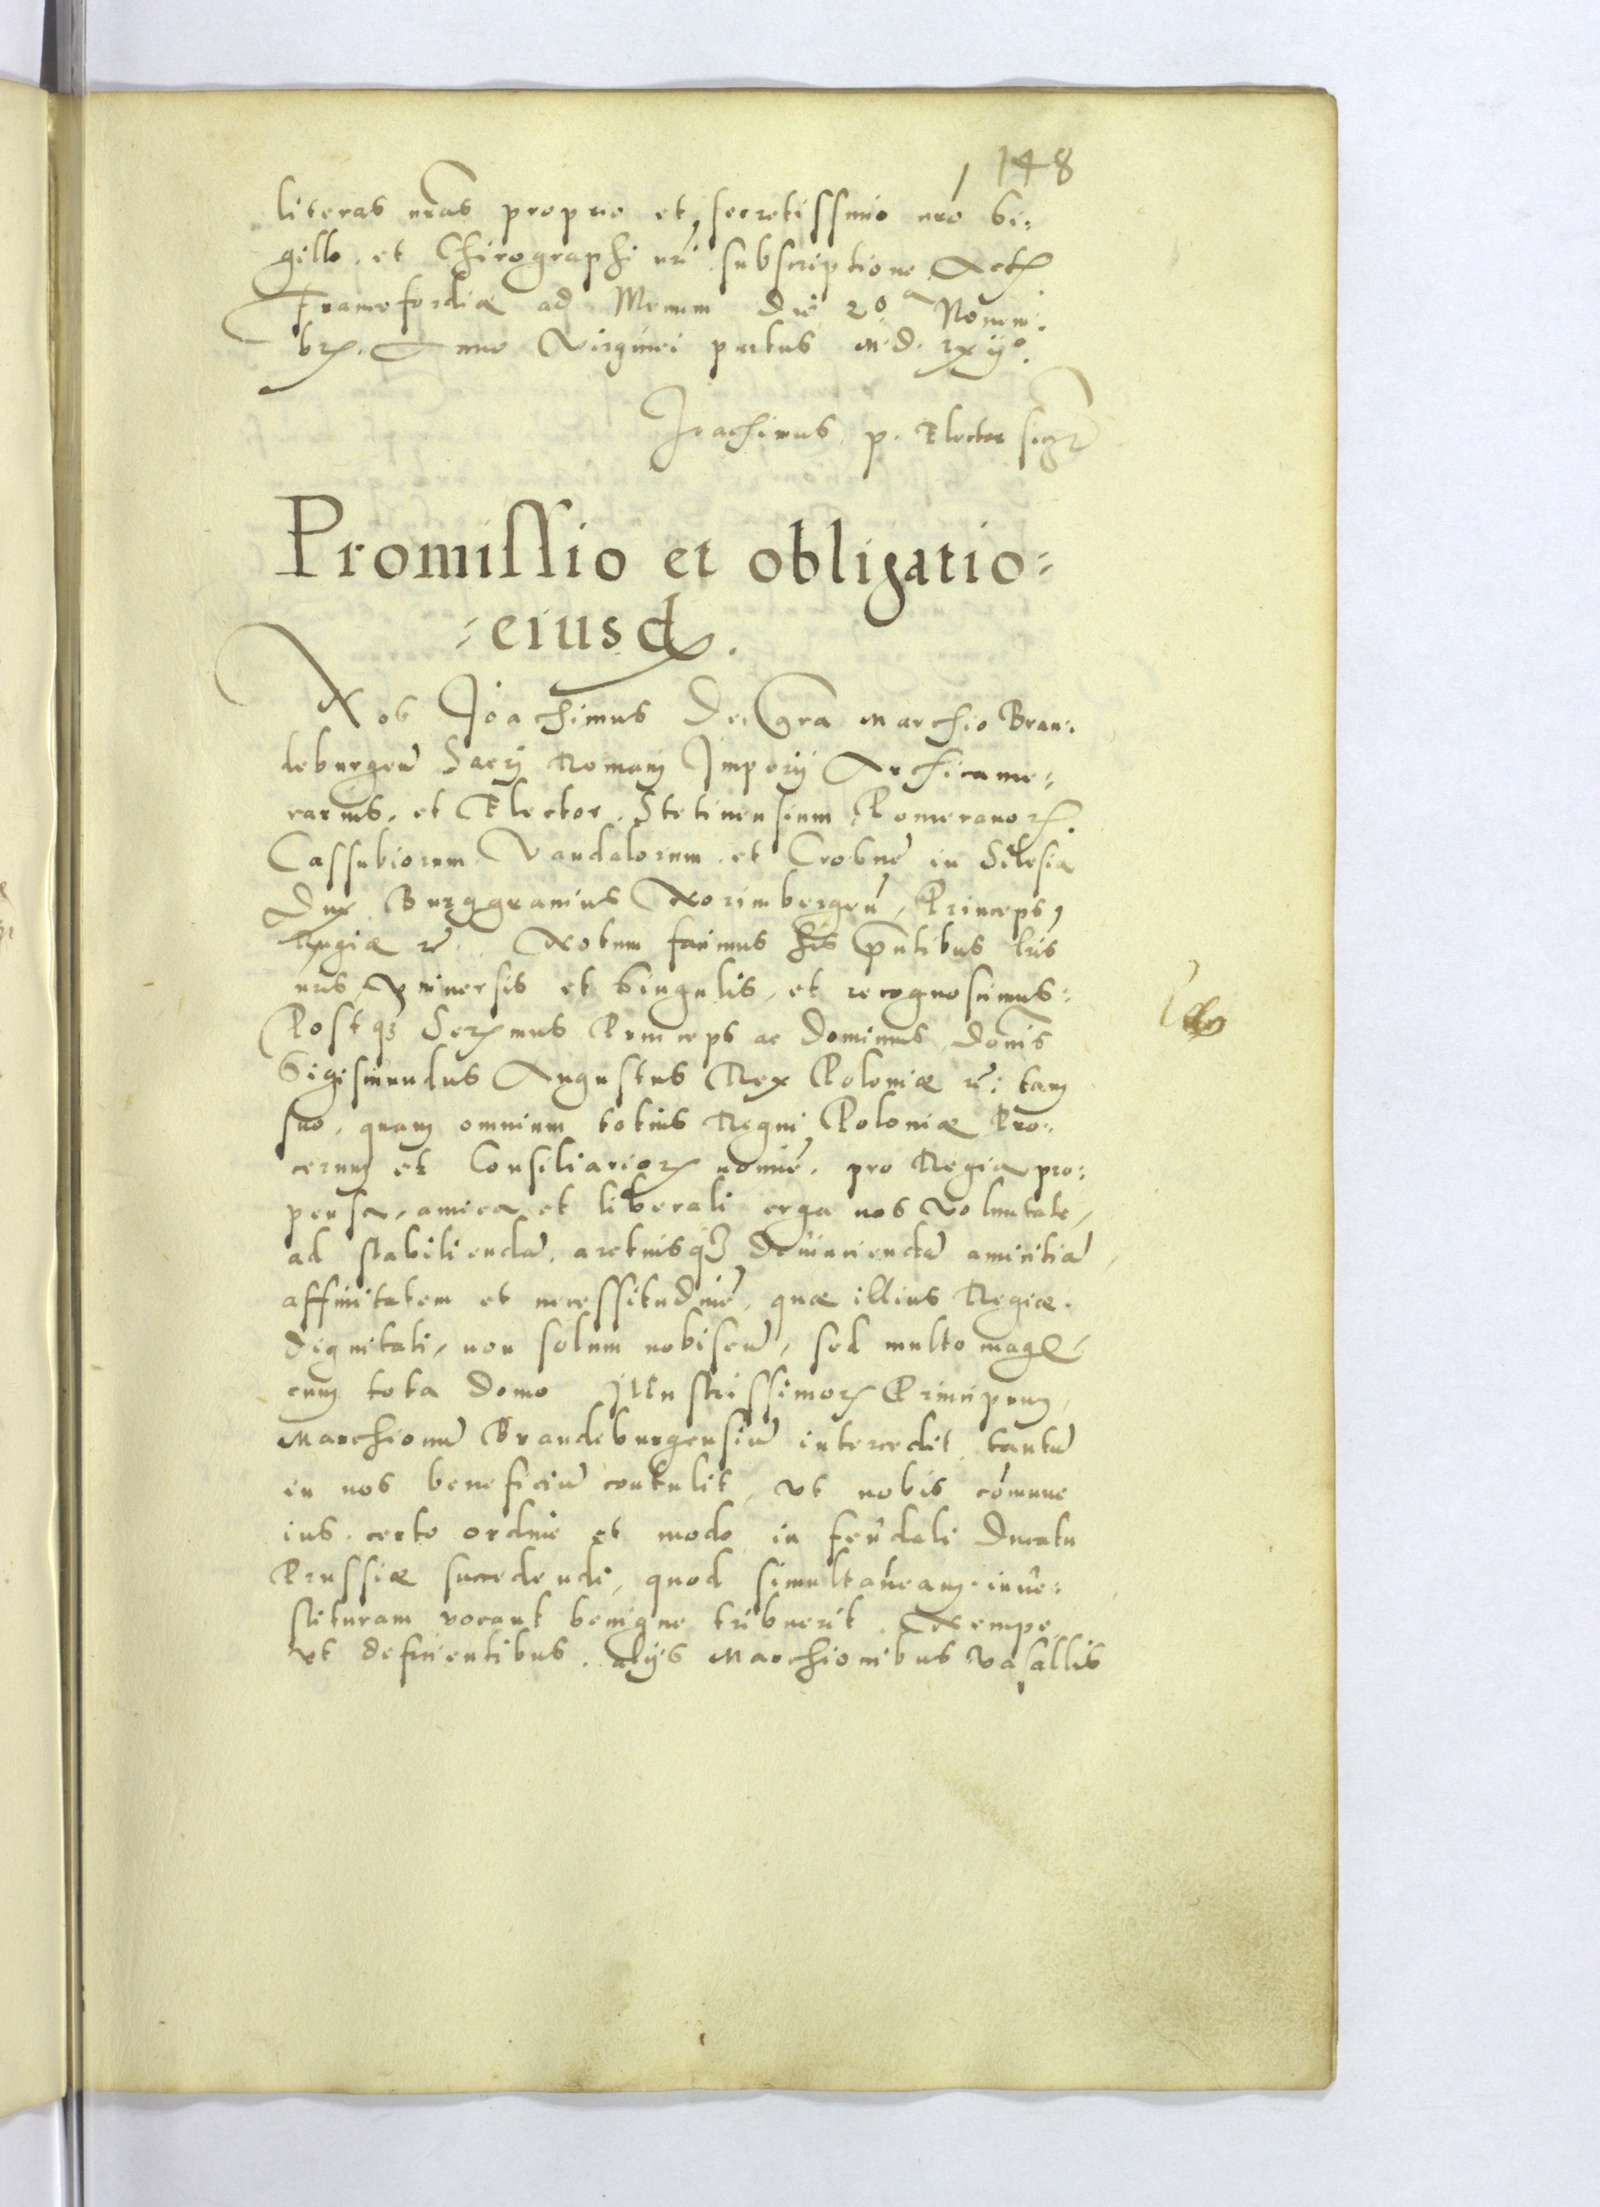 148
literas nras proprio et secretissimo nro si:
gillo, et Chirographi nri subscriptione. Act
Francfordiæ ad Menum Die 20a Novem:
br. Anno Virginei partus M.D.
Joachimus p. Elector
Promissio et obligatio=
=eiusd.
Nos Joachimus Dei Gra Marchio Bran:
deburgeñ Sacrj Romanj Imperij Archicame:
rarius, et Elector. Stetinensium Pomeranor.
Cassubiorum Vandalorum et Crosne in Silesia
Dux. Burggravius Norimbergeñ, Princeps
Rugiæ rc. Notum facimus his pñtibus lris
nris Vniversis et singulis, et recognoscimus:
Postq3 Sermus Princeps ac Dominus, Donis
Sigismundus Augustus Rex Poloniæ rc: tam
suo, quam omnium totius Regni Poloniæ Pro:
cerum et Consiliarior nomie. pro Regia pro:
pensa, amica et liberali erga nos voluntate,
ad stabiliendã. arctiusq3 devinciendã amicitiã
affinitatem et necessitudinẽ, quæ illius Regiæ
Dignitati, non solum nobiscũ, sed multo mag
cum tota Domo Illustrissimor Principum
Marchionũ Brandeburgensiũ intercedit, tantũ
in nos beneficiũ contulit, vt nobis cõmune
ius certo ordine et modo in feudali Ducatu
Prussiæ succedendi, quod simultaneam inve:
stituram vocant benigne tribuerit. Nempe
vt deficientibus. alijs Marchionibus Vasallis